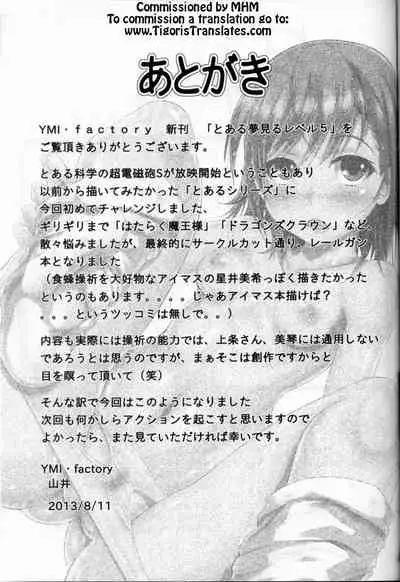 Commissioned by MHM
To commission a translation go to:
www.TigorisTranslates.com
あとがき
YMI・factory 新刊 「とある夢見るレベル5」を
ご覧頂きありがとうございます。
とある科学の超電磁砲Sが放映開始ということもあり
以前から描いてみたかった「とあるシリーズ」に
今回初めてチャレンジしました、
ギリギリまで「はたらく魔王様」「ドラゴンズクラウン」など、
散々悩みましたが、最終的にサークルカット通り、レールガン
本となりました
(食蜂操祈を大好物なアイマスの星井美希っぽく描きたかった
というのもあります。。。。じゃあアイマス本描けば?
。。。というツッコミは無しで。。)
内容も実際には操祈の能力では、上条さん、美琴には通用しない
であろうとは思うのですが、まぁそこは創作ですからと
目を瞑って頂いて(笑)
そんな訳で今回はこのようになりました
次回も何かしらアクションを起こすと思いますので
よかったら、また見ていただければ幸いです。
YMI・factory
山井
2013/8/11